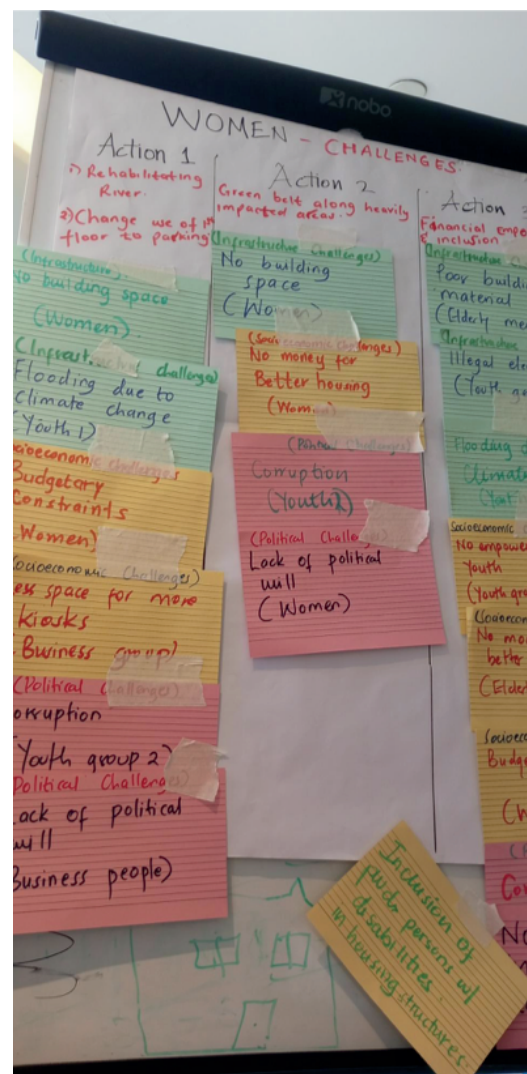 nobo
WOMEN - CHALLENGES.
Action 1
1) Rehabilitating
River.
2) Change use of 1st
floor to parking
(Infrastructure).
No building space
(Women).
(Infrast. challenges)
Flooding due to
climate change
(Youth 1)
Socioeconomic challenges
Budgetary
Constraints
(Women)
Socioeconomic Challenges)
ess space for more
kiosks
Business group)
(Political Challenges)
orruption
Youth group 2)
Political Challenges)
ack of political
will
Business people)
Action 2
Green belt along heavily
impacted areas.
(Infrastructure Challenges)
No building
space
(Women)
(Socioeconomic Challenges)
No money for
Better housing
(Women)
(Political Challenges)
Corruption
(Youth 2)
(Political Challenges)
Lack of political
will
(Women)
Action
Financial empo
& inclusion
(Infrastructure C
Poor buildi
material
(Elderly me
(Infrastructure
Illegal ele
(Youth g
Flooding
Climat
(Yout
Socioeconomic
No empowe
Youth
(Youth gro
(Socioecon
No mo
bette
(Elder
Socioeco
Budge
(
Co
No
Inclusion of
persons w/
disabilities.
in housing structures.